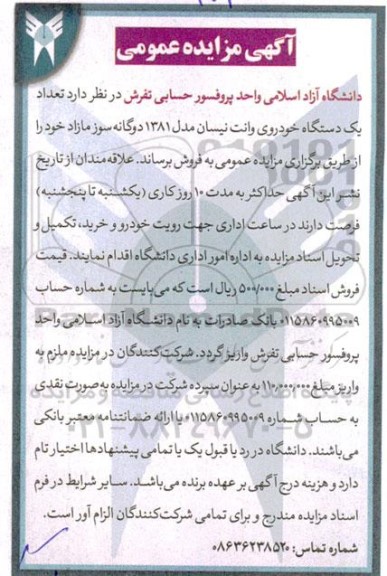 آگهی مزایده عمومی
دانشگاه آزاد اسلامی واحد پروفسور حسابی تفرش در نظر دارد تعداد
یک دستگاه خودروی وانت نیسان مدل ۱۳۸۱ دوگانه سوز مازاد خود را
از طریق برگزاری مزایده عمومی به فروش برساند. علاقه‌مندان از تاریخ
نشر این آگهی حداکثر به مدت ۱۰ روز کاری (یکشنبه تا پنجشنبه)
فرصت دارند در ساعت اداری جهت رویت خودرو و خرید، تکمیل و
تحویل اسناد مزایده به اداره امور اداری دانشگاه اقدام نمایند. قیمت
فروش اسناد مبلغ ۵۰۰/۰۰۰ ریال است که می‌بایست به شماره حساب
۰۱۱۵۸۶۰۹۹۵۰۰۹ بانک صادرات به نام دانشگاه آزاد اسلامی واحد
پروفسور حسابی تفرش واریز گردد. شرکت‌کنندگان در مزایده ملزم به
واریز مبلغ ۱۱۰,۰۰۰,۰۰۰ به عنوان سپرده شرکت در مزایده به صورت نقدی
به حساب شماره ۰۱۱۵۸۶۰۹۹۵۰۰۹ یا ارائه ضمانتنامه معتبر بانکی
می‌باشند. دانشگاه در رد یا قبول یک یا تمامی پیشنهادها اختیار تام
دارد و هزینه درج آگهی بر عهده برنده می‌باشد. سایر شرایط در فرم
اسناد مزایده مندرج و برای تمامی شرکت‌کنندگان الزام آور است.
شماره تماس: ۰۸۶۳۶۲۳۸۵۲۰